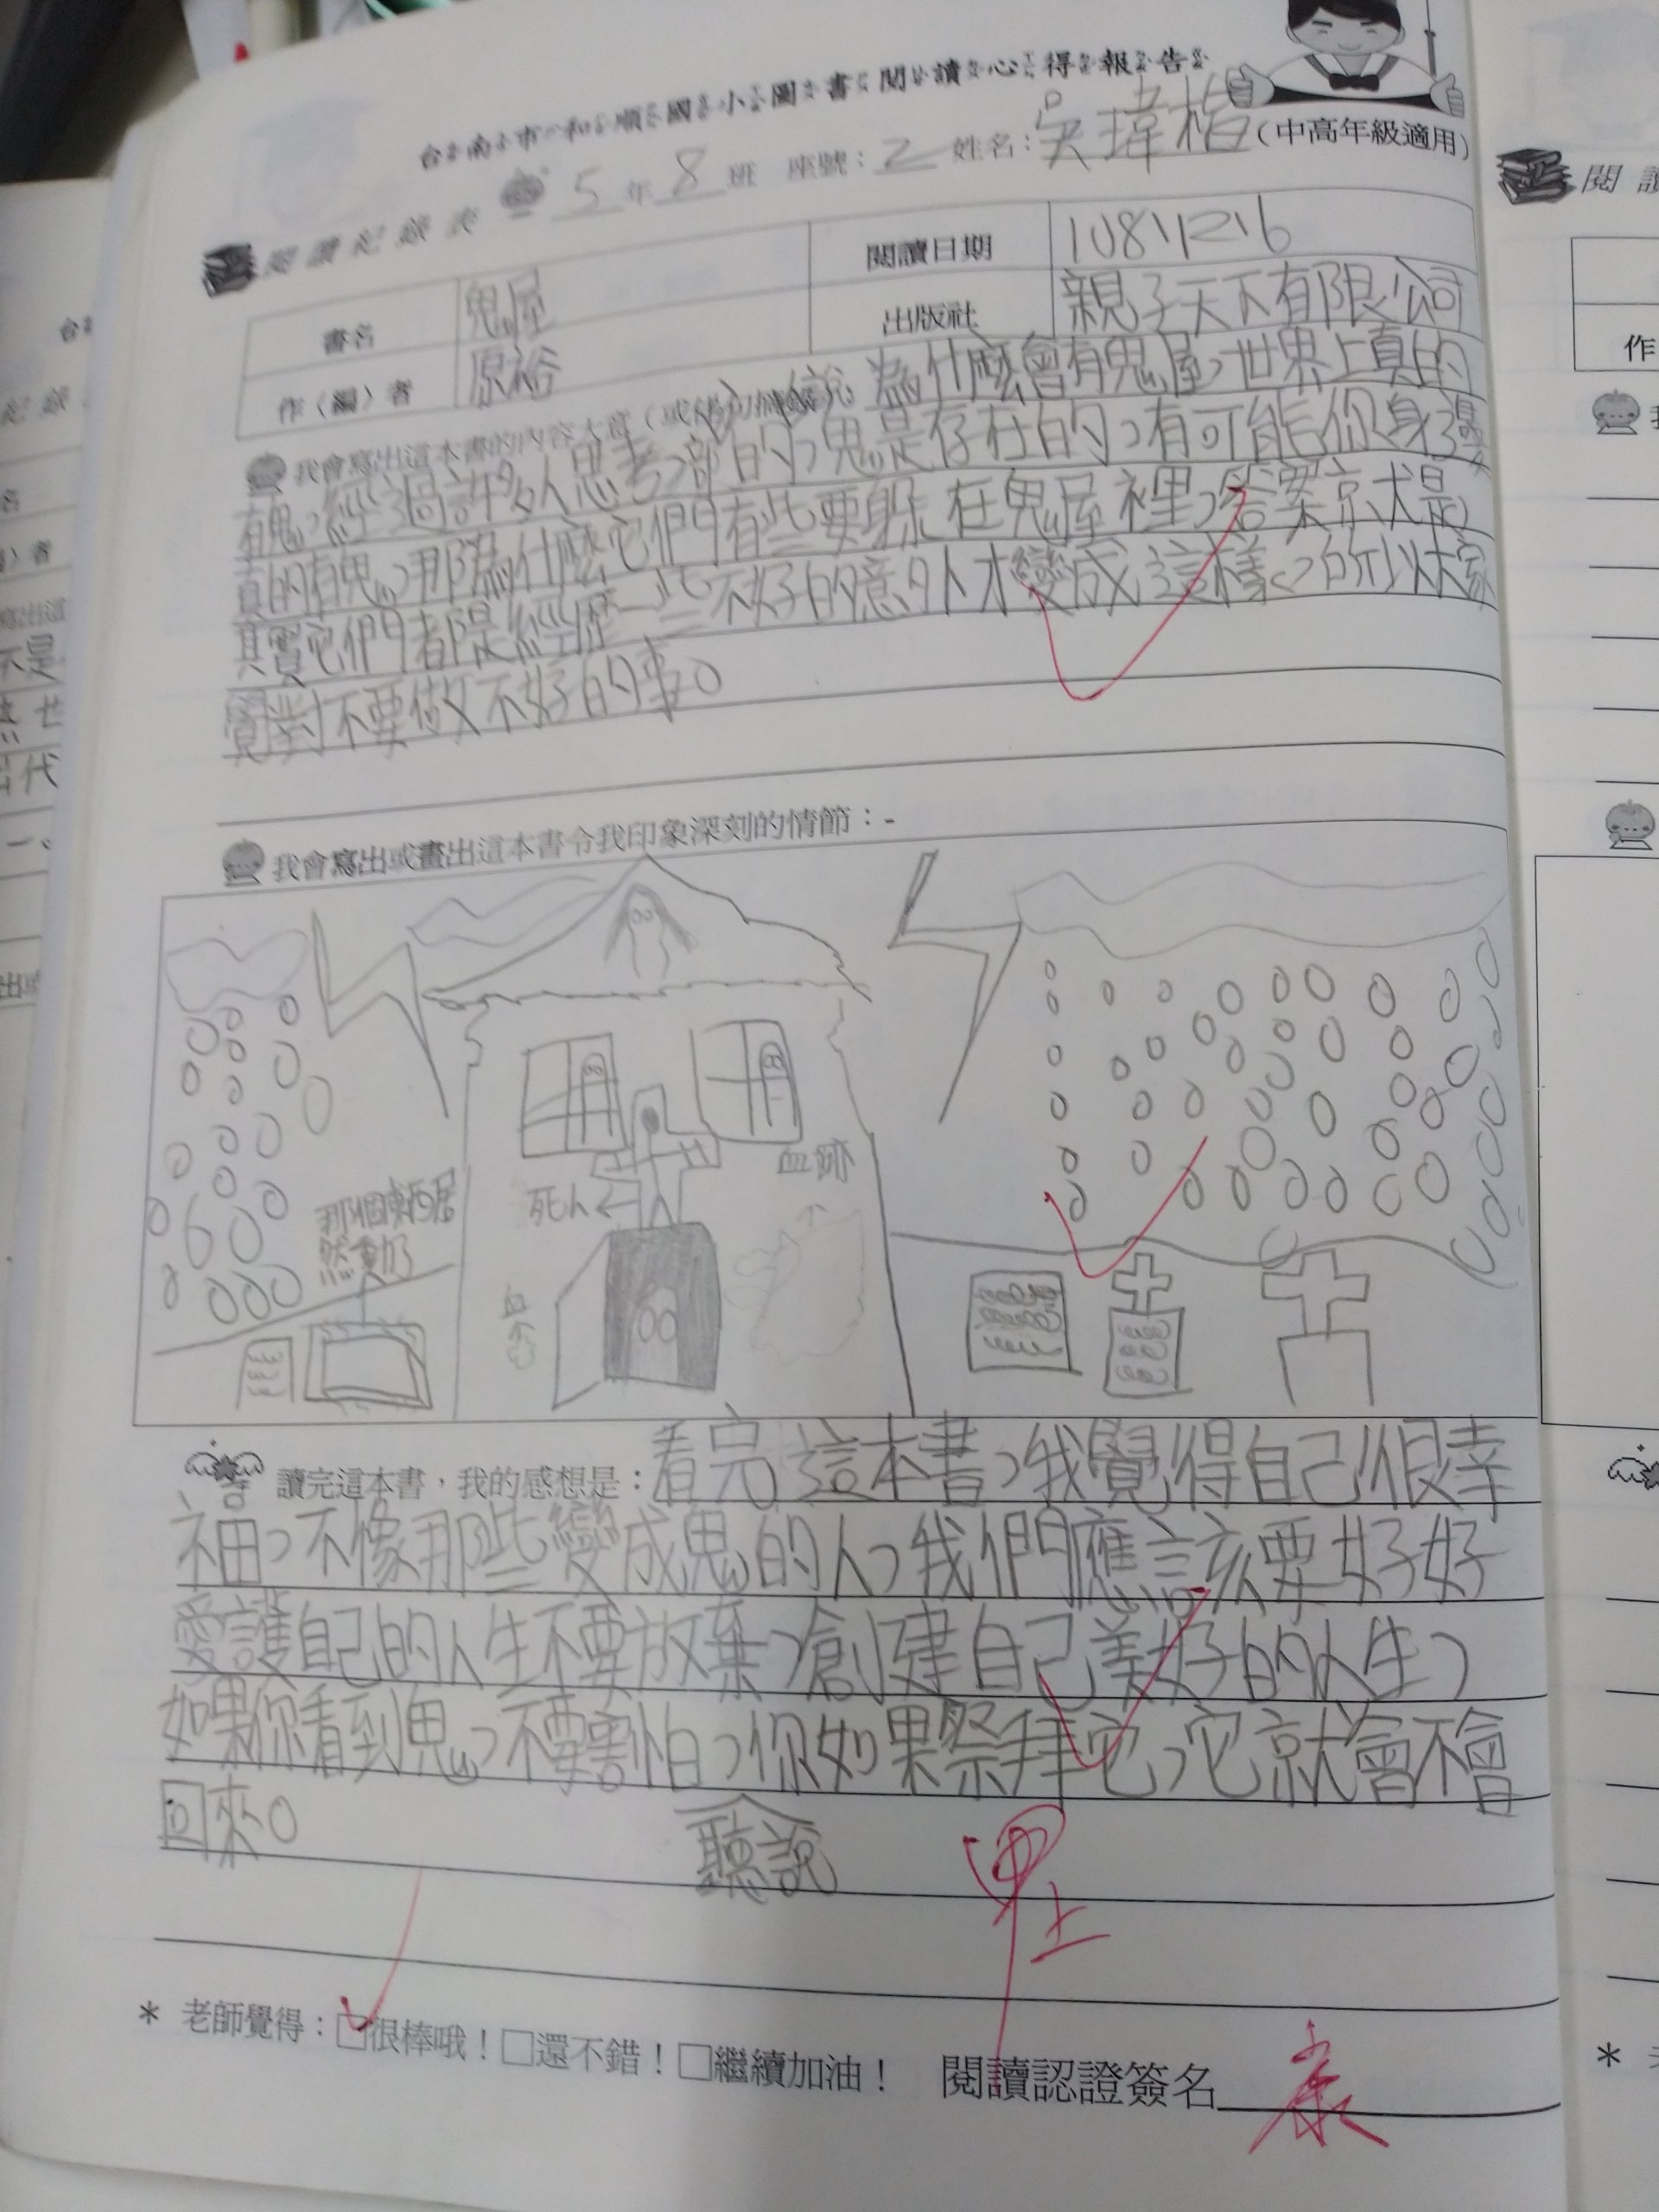 台南市和順國小圖書閱讀心得報告
(中高年級適用)
閱讀記錄表 5年8班 座號：2 姓名：吳瑋楷
書名 鬼屋 閱讀日期 108\12\16
作（編）者 原裕 出版社 親子天下有限公司
我會寫出這本書的內容大意（或 為什麼會有鬼屋，世界上真的
有鬼，經過許多人思考，部的，鬼是存在的，有可能你身邊
真的有鬼，那為什麼它們有些要躲在鬼屋裡，答案就是
其實它們都是經歷一些不好的意外才變成這樣，所以大家
覺對不要做不好的事。
我會寫出或畫出這本書令我印象深刻的情節：
血跡
死人
那個東西居
然動了
血
讀完這本書，我的感想是：看完這本書，我覺得自己很幸
福，不像那些變成鬼的人，我們應該要好好
愛護自己的人生不要放棄，創建自己美好的人生，
如果你看到鬼，不要害怕，你如果祭拜它，它就會不會
回來。 聽說
甲上
* 老師覺得：□很棒哦！□還不錯！□繼續加油！ 閱讀認證簽名
閱
作
出代